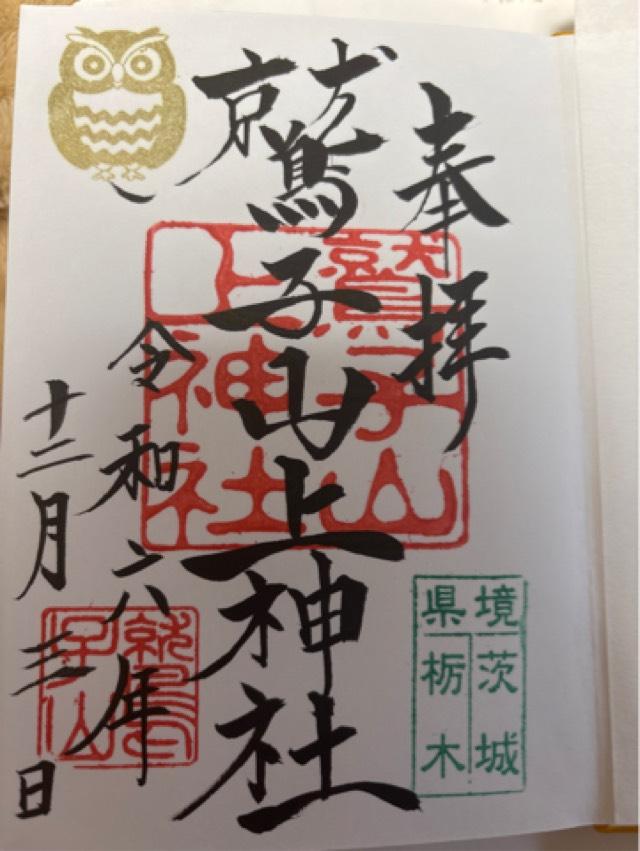 奉拝
鷲子山上神社
令和六年
十二月三日
鷲子山
上神社
鷲
子山
県境
茨城
栃木